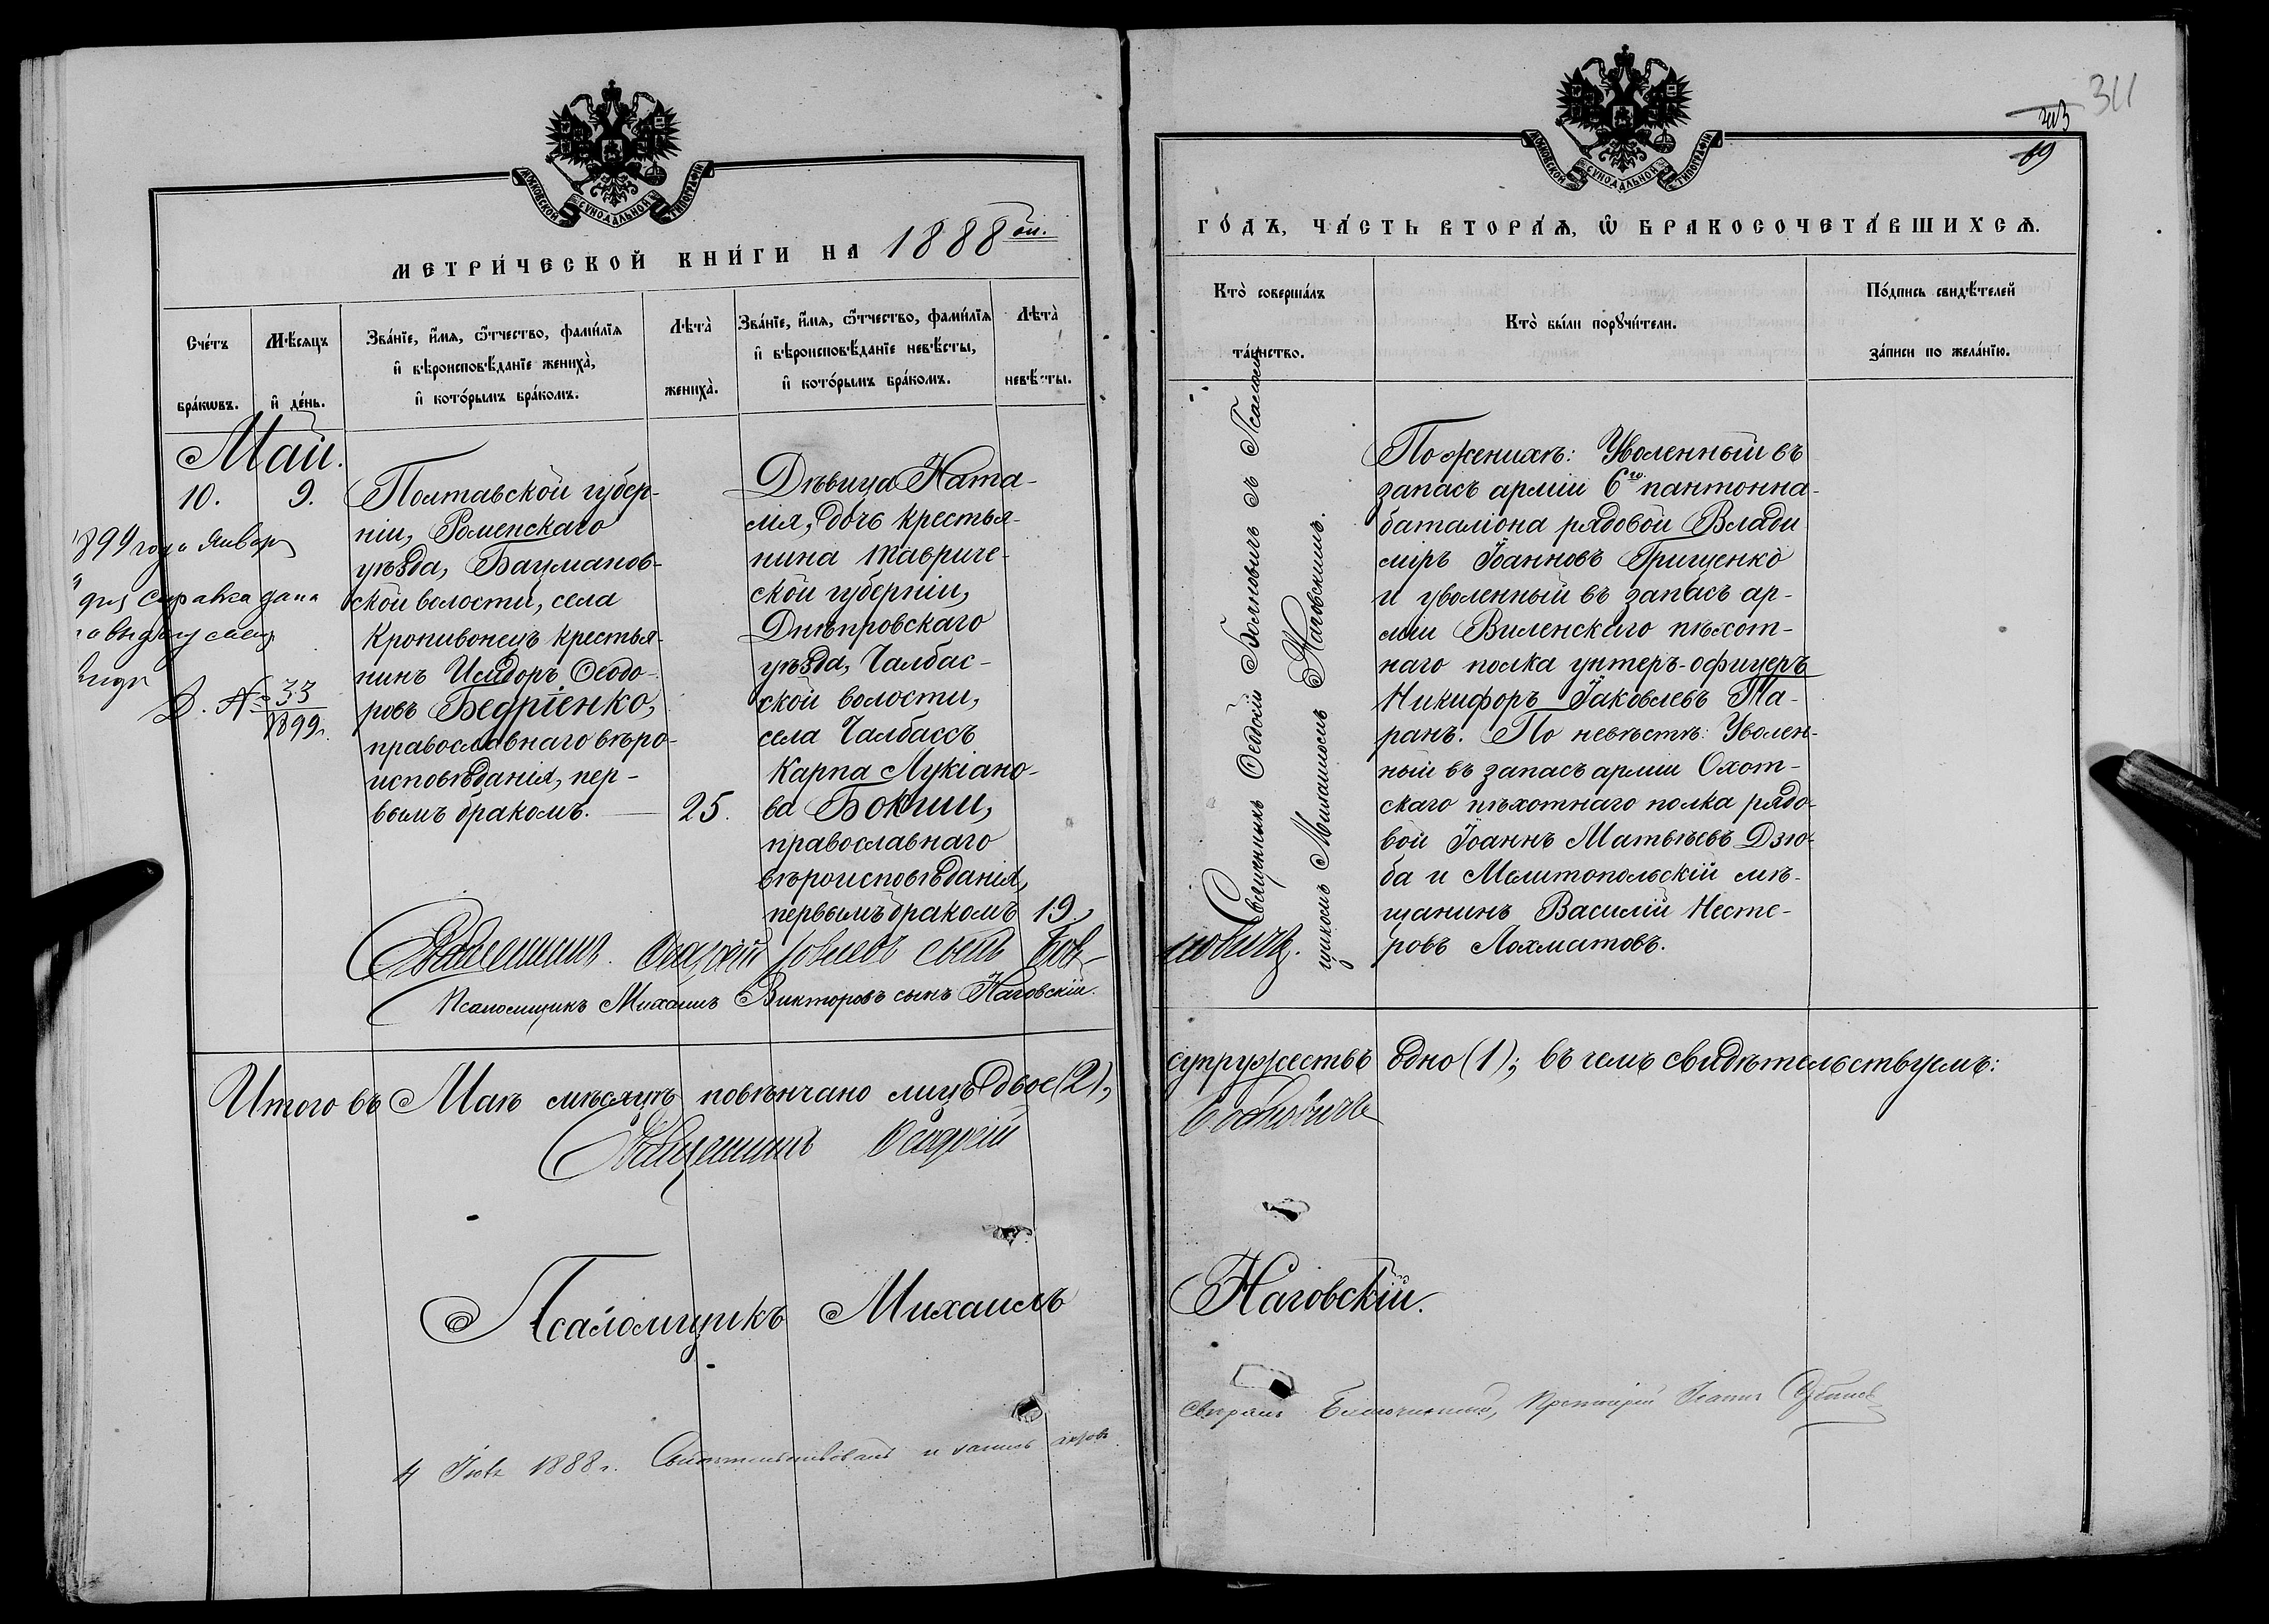 МОСКОВСКОЙ СѴНОДАЛЬНОЙ ТИПОГРАФІИ
МЕТРИ́ЧЕСКОЙ КНИ́ГИ НА 1888 ой.
Сче́тъ бра́кѡвъ.
Мѣ́сяцъ и҆ де́нь.
Зва́нїе, и҆́мя, ѻ҆́тчество, фами́лїя
и҆ вѣроисповѣ́данїе жениха̀,
и҆ кото́рымъ бра́комъ.
Лѣта̀ жениха̀.
Зва́нїе, и҆́мя, ѻ҆́тчество, фами́лїя
и҆ вѣроисповѣ́данїе невѣ́сты,
и҆ кото́рымъ бра́комъ.
Лѣта̀ невѣ́сты.
Май.
10. 9.
Полтавской губер-
ніи, Роменскаго
уѣзда, Бацманов-
ской волости, села
Кропивонецъ крестья-
нинъ Исидоръ Ѳеодо-
ровъ Бедріенко,
православнаго вѣро-
исповѣданія, пер-
вымъ бракомъ. — 25.
Дѣвица Ната-
лія, дочь крестья-
нина Тавриче-
ской губерніи,
Днѣпровскаго
уѣзда, Чалбас-
ской волости,
села Чалбассъ
Карпа Лукіано-
ва Бокши,
православнаго
вѣроисповѣданія,
первымъ бракомъ 19.
1899 года Январ
справка дана
Д. № 33
1899 г.
Священникъ Ѳеодосій сынъ
Псаломщикъ Михаилъ Викторовъ сынъ Наговскій.
Итого въ Маѣ мѣсяцѣ повѣнчано лицъ двое (2),
Священникъ Ѳеодосій
Псаломщикъ Михаилъ
4 1888 г. Свидѣтельствовалъ и запись
311
69
МОСКОВСКОЙ СѴНОДАЛЬНОЙ ТИПОГРАФІИ
ГО́ДЪ, ЧА́СТЬ ВТОРА́Ѧ, Ѡ҆ БРАКОСОЧЕТА́ВШИХСѦ.
Кто̀ соверша́лъ
та́инство.
Кто̀ бы́ли порꙋчи́тели.
По́дпись свидѣ́телей
за́писи по жела́нїю.
Священникъ Ѳеодосій съ Псалом-
щикомъ Михаиломъ Наговскимъ.
новичъ.
По женихѣ: Уволенный въ
запасъ арміи 6го понтонна-
баталіона рядовой Влади
міръ Іоанновъ Грищенко
и уволенный въ запасъ ар-
міи Виленскаго пѣхот-
наго полка унтеръ-офицеръ
Никифоръ Іаковлевъ Та-
ранъ. По невѣстѣ: Уволен-
ный въ запасъ арміи Охот-
скаго пѣхотнаго полка рядо-
вой Іоаннъ Матвѣевъ Дзю-
ба и Мелитопольскій мѣ-
щанинъ Василій Несте-
ровъ Лохматовъ.
супружествъ одно (1); въ чемъ свидѣтельствуемъ:
Наговскій.
Благочинный, Протоіерей Іоаннъ